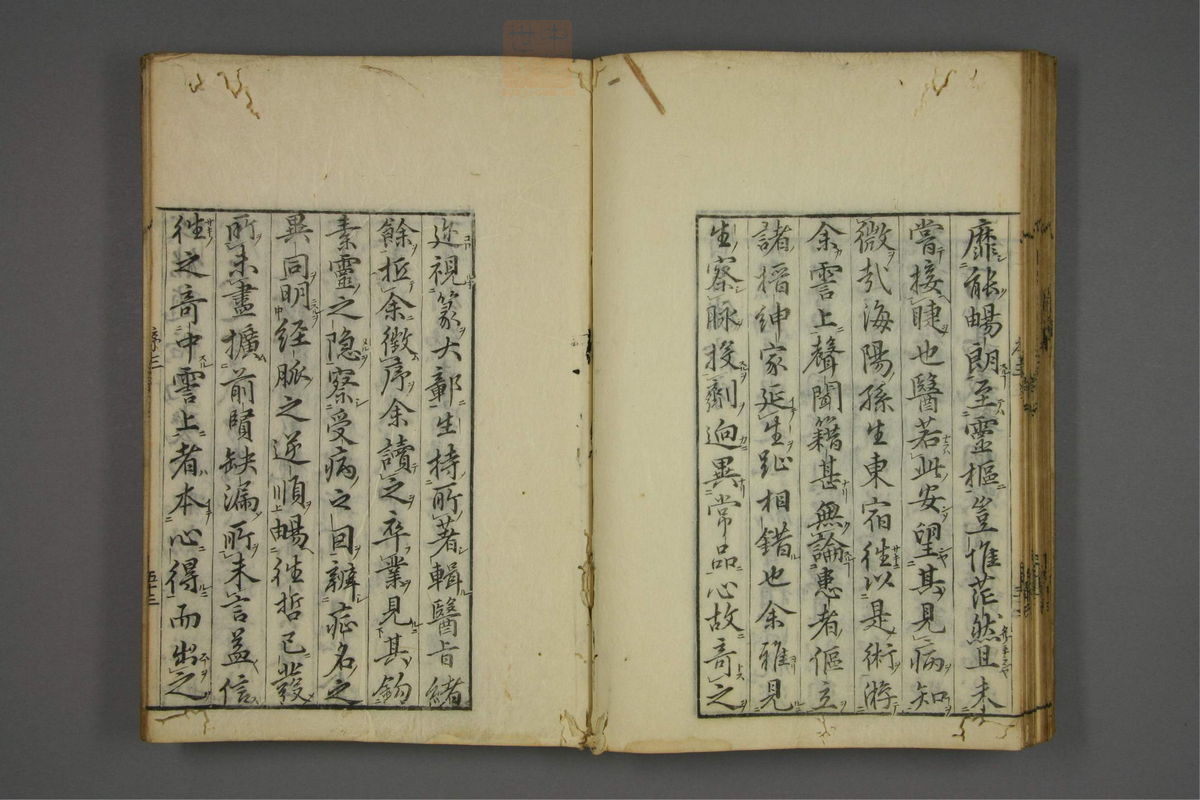 靡能暢朗至靈樞豈惟茫然且未
嘗接睫也醫若此安望其見病知
微哉海陽孫生東宿徃以是術游
余霅上聲聞籍甚無論患者傴立
諸搢紳家延生趾相錯也余雅見
生察脉投劑逈異常品心故竒之
近視篆大鄣生持所著輯醫旨緒
餘抵余徴序余讀之卒業見其鈎
素靈之隐察受病之因辧症名之
異同明經脈之逆順暢徃哲已發
所未盡擴前賢缺漏所未言益信
徃之竒中霅上者本心得而出之
序三